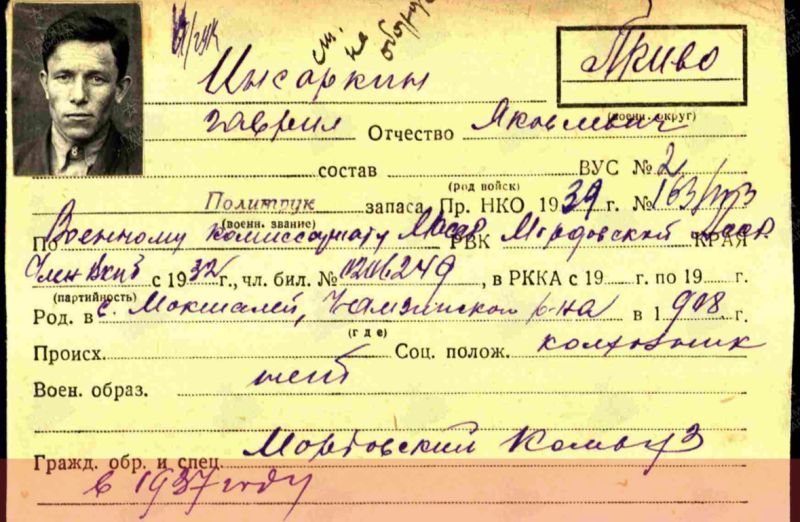 см. на обороте
ПриВО
(военн. округ)
Инсаркин
Гавриил Отчество Яковлевич
состав ВУС № 2
(род войск)
Политрук запаса Пр. НКО 1939 г. № 163/
(военн. звание)
По Военному комиссариату МАССР РВК Мордовской АССР КРАЯ
Член ВКПб с 1932 г., чл. бил. № 0206249, в РККА с 19 г. по 19 г.
(партийность)
Род. в с. Мокшалей, Чамзинского р-на в 1908 г.
(где)
Происх. Соц. полож. колхозник
Воен. образ. нет
Гражд. обр. и спец. Мордовский Комвуз
в 1937 году